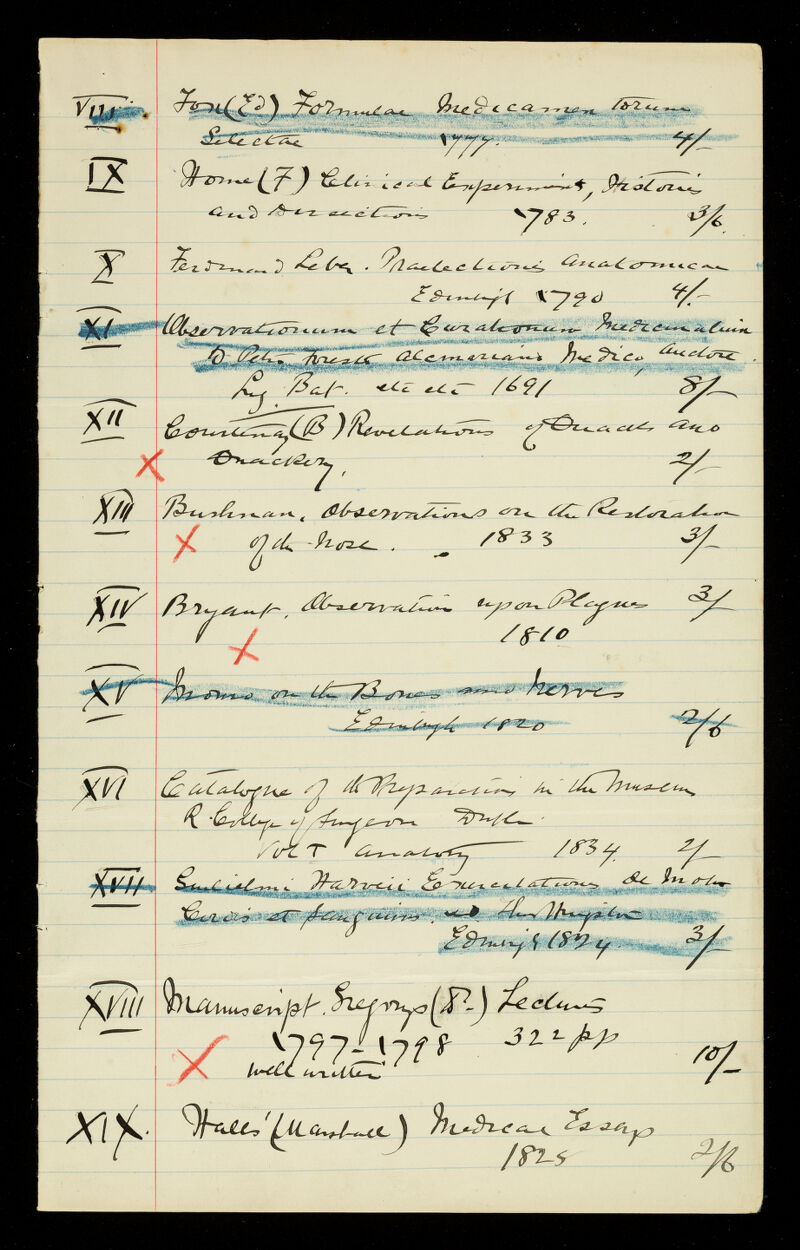 VIII Fox (Ed) Formulae Medicamentorum
Selectae 1777. 4/-
IX Home (F) Clinical Experiments, Histories
and Dissections 1783. 3/6.
X Ferdinand Leber. Praelectiones Anatomicae
Edinburgh 1790 4/-
XI Observationum et Curationum Medicinalium
D Petro Foresto Alcmariano Medico, Auctore.
Lug. Bat. etc etc 1691 8/-
XII Courtenay (B) Revelations of Quacks and
Quackery, 2/-
XIII Bushnan, Observations on the Restoration
of the Nose. 1833 3/-
XIV Bryant, Observation upon Plagues 3/
1810
XV Monro on the Bones and Nerves
Edinburgh 1820 2/6
XVI Catalogue of the Preparations in the Museum
R. College of Surgeons Dublin
Vol I Anatomy 1834 2/
XVII Gulielmi Harveii Exercitationes de Motu
Cordis et Sanguinis.
Edinburgh 1824. 3/-
XVIII Manuscript. Gregorys (Dr.) Lectures
1797-1798 322 pp
well written 10/-
XIX. Halls' (Marshall) Medical Essays
1825 2/6